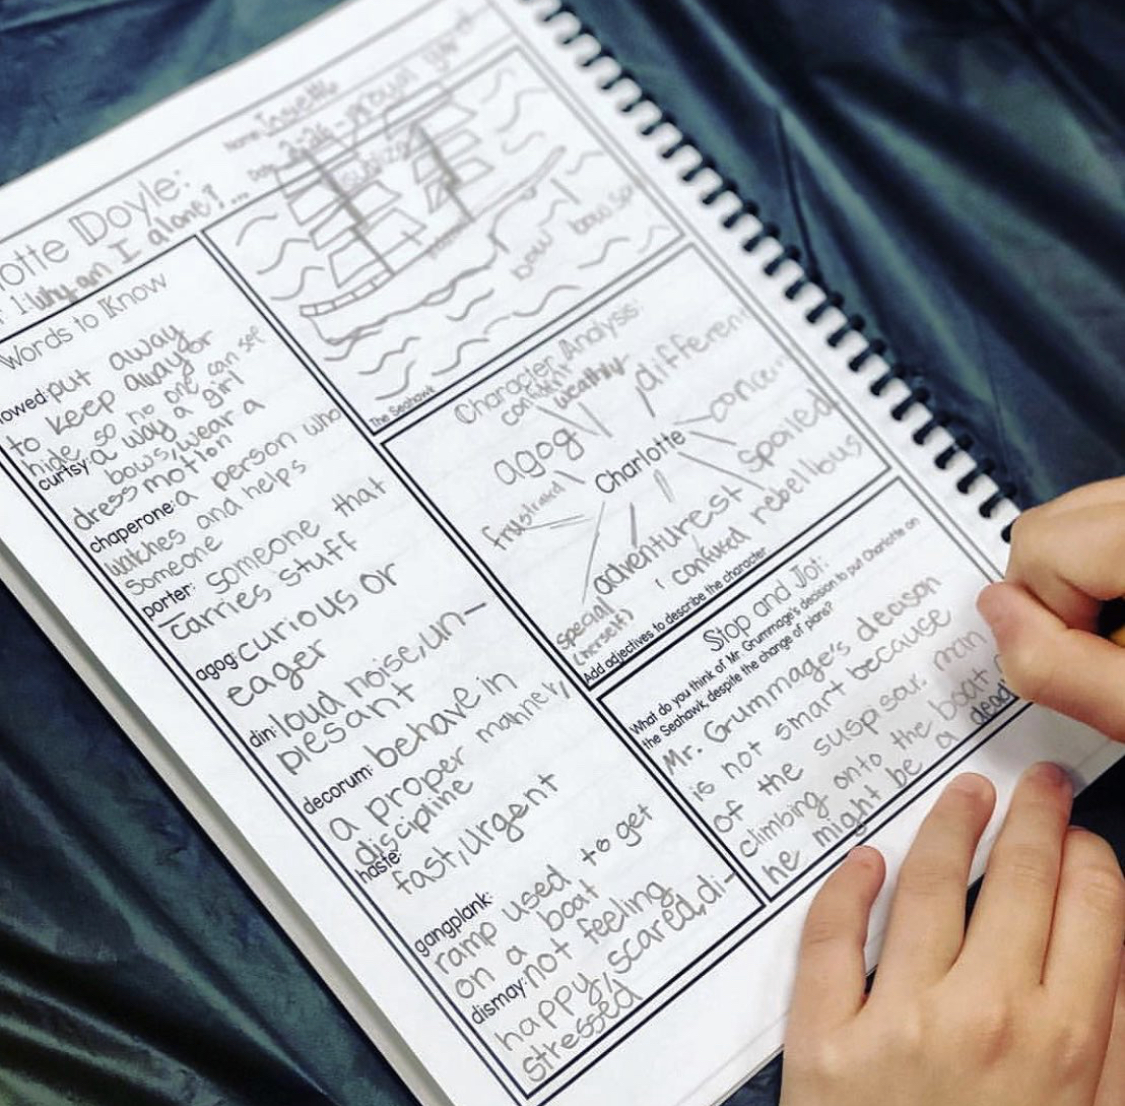 otte Doyle:
r 1: Why am I alone? ...
Name:
Date:
Words to Know
owed: put away
to keep away or
hide so no one can see
curtsy: a way a girl
bows, wear a
dress motion
chaperone: a person who
watches and helps
someone
porter: someone that
carries stuff
agog: curious or
eager
din: loud noise, un-
plesant
decorum: behave in
a proper manner,
discipline
haste:
fast, urgent
gangplank:
ramp used to get
on a boat
dismay: not feeling
happy, scared, di-
stressed
royal yard
bow
The Seahawk
Character Analysis:
wealthy
different
agog
Charlotte
spoiled
frustrated
adventurest
rebellious
confused
special
(herself)
Add adjectives to describe the character
Stop and Jot:
What do you think of Mr. Grummage's decision to put Charlotte on
the Seahawk, despite the change of plans?
Mr. Grummage's deason
is not smart because
of the suspisour man
climbing onto the boat
he might be a dead